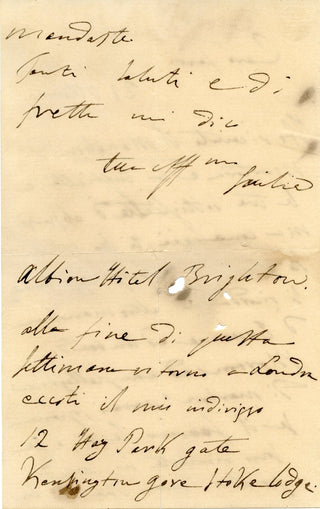 mandaste.
Tanti saluti e di
fretta mi dico
tuo aff mo
Giulio
Albion Hôtel Brighton.
alla fine di questa
settimana ritorno a Londra
eccoti il mio indirizzo
12 Hay Park gate
Kensington gore Stoke lodge.